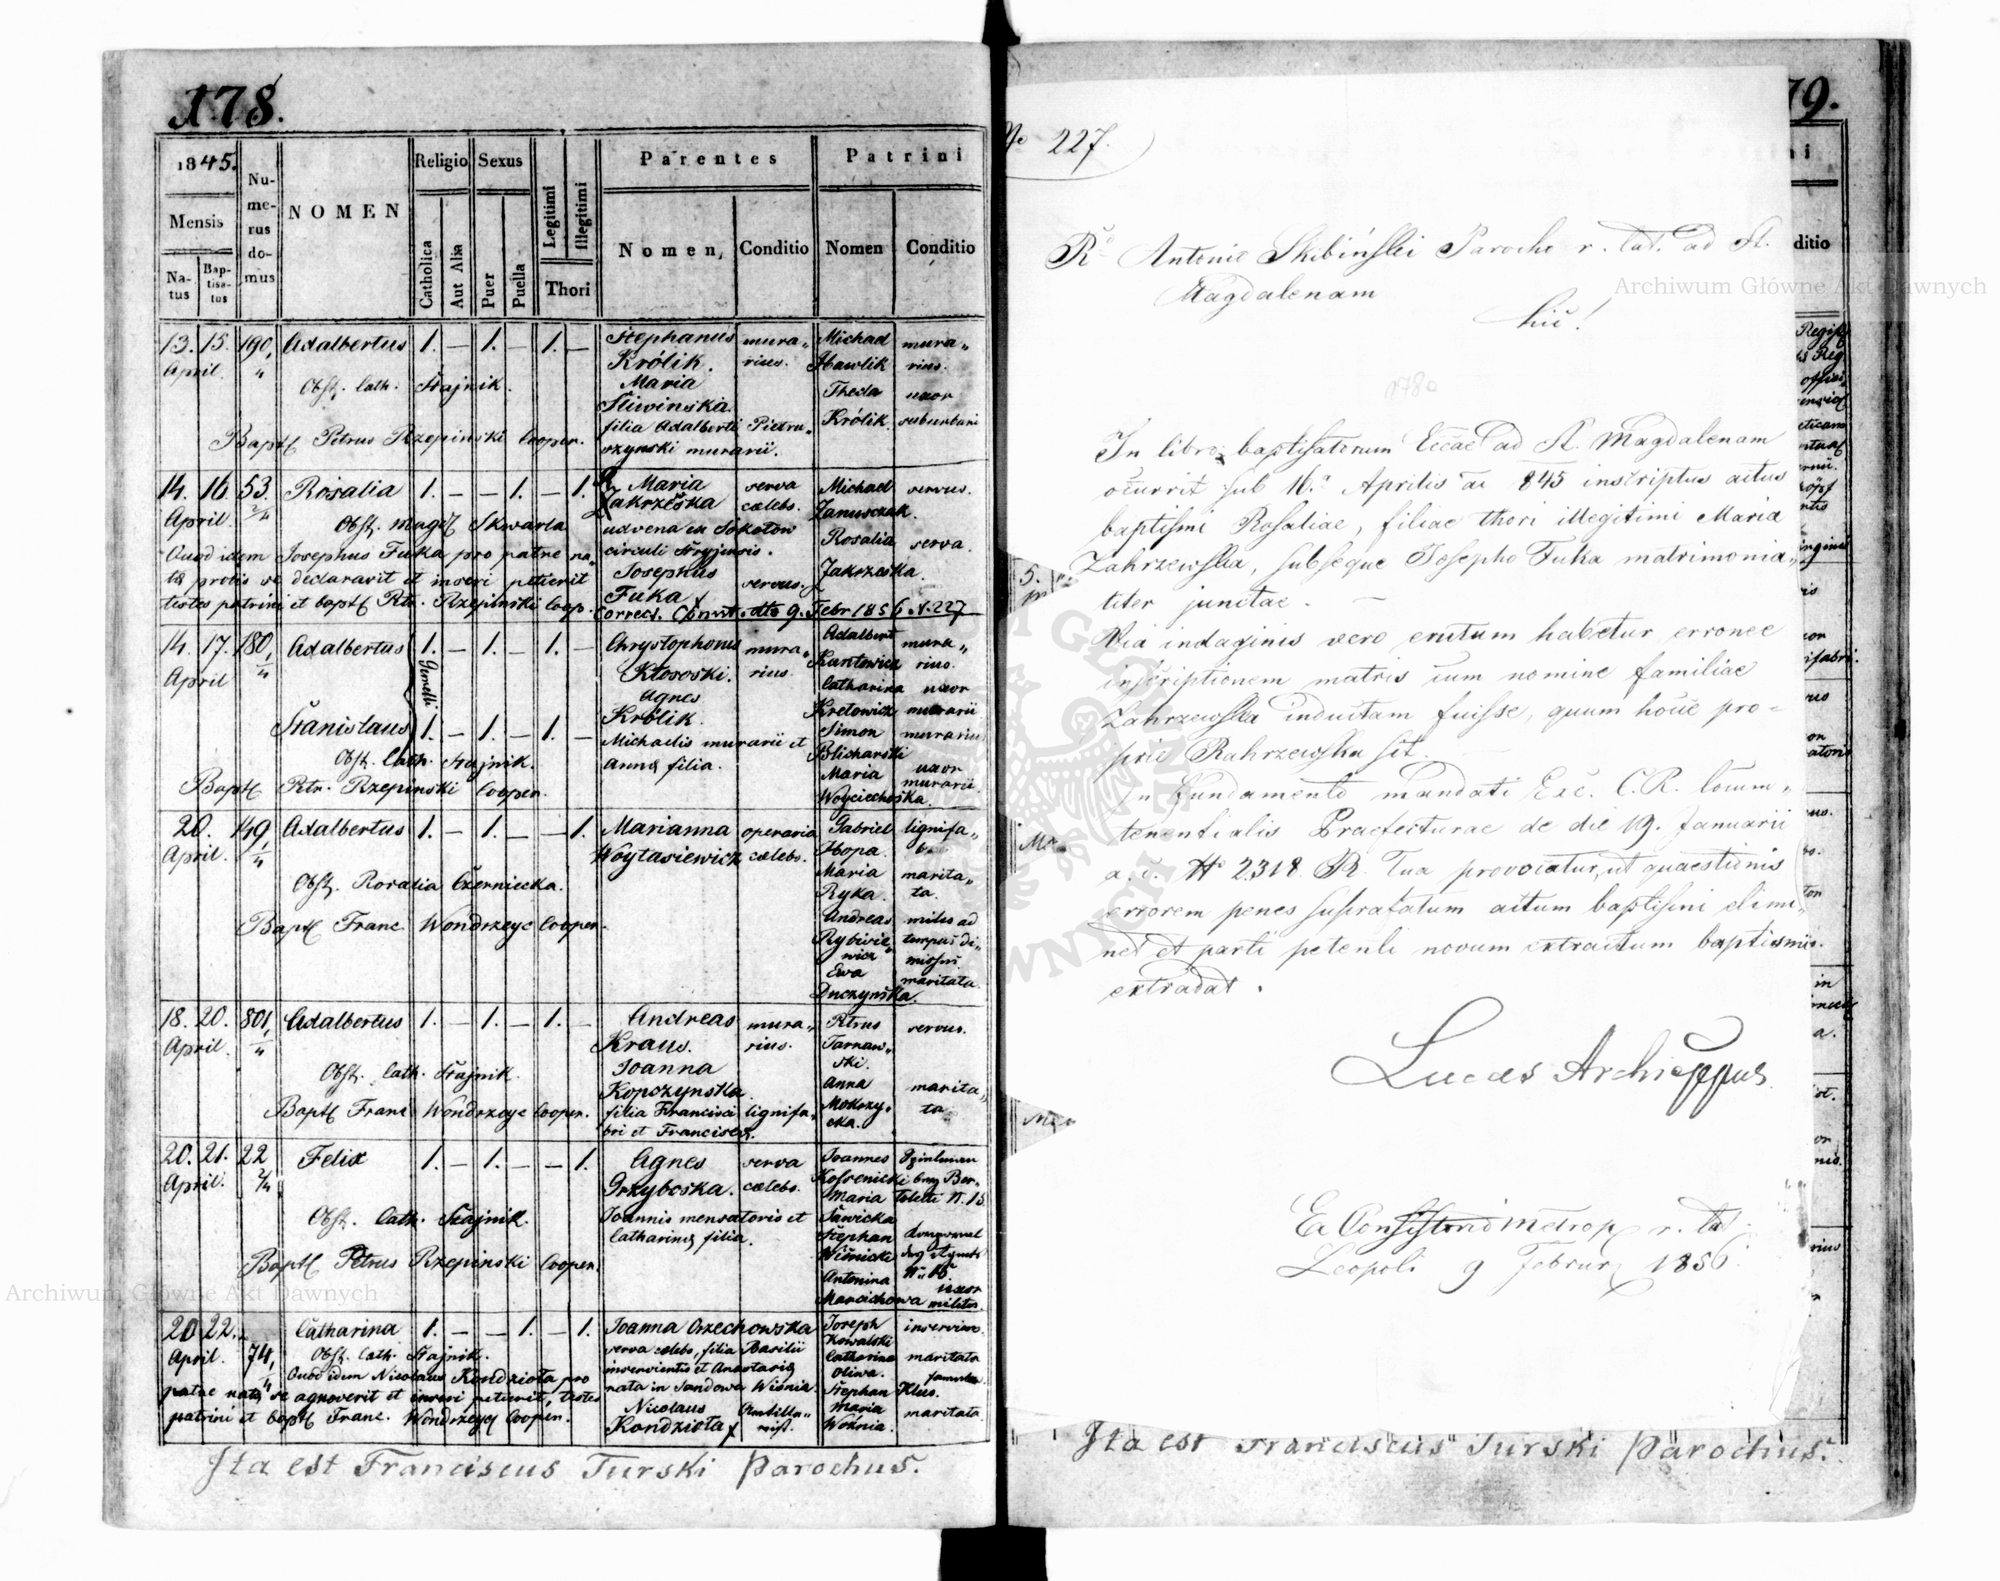 178.
1845.
Numerus domus
NOMEN
Religio
Sexus
Legitimi
Illegitimi
Parentes
Patrini
Mensis
Natus
Baptisatus
Catholica
Aut Alia
Puer
Puella
Thori
Nomen,
Conditio
Nomen
Conditio
13. 15. 190 Adalbertus 1. — 1. — 1. — Stephanus mura„ Michael mura„
April. Królik. rius. Hawlik rius.
Obst. Cath. Stajnik. Maria Thecla uxor
Śliwinska Królik. suburbani
filia Adalberti Pietru„
Bapt. Petrus Rzepinski Cooper. szynski murarii.
14. 16. 53. Rosalia 1. — — 1. — 1. Maria serva Michael servus.
April 2/4 Zakrzeska cælebs. Janusczak.
Obst. Magd. Skwarla advena ex Sokolow Rosalia serva.
Quod idem Josephus Fuka pro patre na„ circuli Stryjensis. Zakrzeska.
tæ prolis se declaravit et inseri petierit Josephus servus.
testes patrini et bapt. Ptr. Rzepinski Coop. Fuka
correct. Consist. dto 9. Febr 1856 N. 227
14. 17. 180 Adalbertus 1. — 1. — 1. — Chrystophorus mura„ Adalbert mura„
April Gemelli Kłososki. rius. Kantowicz rius.
Agnes Catharina uxor
Stanislaus 1. — 1. — 1. — Królik. Kretowicz murarii
Michaelis murarii et Simon murarius
Obst. Cath. Stajnik. Annæ filia. Blicharski
Bapt. Petr. Rzepinski Cooper. Maria uxor murarii.
Woyciechoska.
20. 49, Adalbertus 1. — 1. — — 1. Marianna operaria Gabriel lignifa„
April. Woytasiewicz cælebs. Hopa.
Obst. Rosalia Czerniecka. Maria marita„
Ryka. ta.
Bapt. Franc. Wondrzeyc Cooper. Andreas miles ad
Rybicie„ tempus di„
wicz missus.
Ewa maritata.
Duczyńska.
18. 20. 801, Adalbertus 1. — 1. — 1. — Andreas mura„ Petrus servus.
April. Kraus. rius. Tarnaw„
Obst. Cath. Stajnik. Joanna ski.
Kopczynska. Anna marita„
Bapt. Franc Wondrzeyc Cooper. filia Francisci lignifa„ Mokrzy„ ta.
bri et Franciscæ. cka.
20. 21. 22 Felix 1. — 1. — — 1. Agnes serva Joannes
April. 2/4 Grzyboska. cælebs.
Obst. Cath. Stajnik. Joannis mensatoris et Maria N. 15
Catharinæ filia. Sawicka
Bapt. Petrus Rzepinski Cooper. Stephan
Wiśnicki
Antonina uxor
Marcichowa militis.
20 22. 74, Catharina 1. — — 1. — 1. Joanna Orzechowska Joseph inserviens.
April. Obst. Cath. Stajnik. serva cælebs, filia Basilii Kowalski
Quod idem Nicolaus Kondziola pro inservientis et Anastasiæ Catharina maritata
patre natæ se agnoverit et inseri petierit, testes nata in Sandowa Wisnia. Oliwa.
patrini et bapt. Franc. Wondrzeyc Cooper. Nicolaus Stephan Klus. famulus.
Kondziola Maria maritata
Woźnia.
Ita est Franciscus Turski Parochus.
79.
No 227.
Rdo Antonio Skibiński Parocho r. lat. ad St.
Magdalenam
hic!
In libro baptisatorum Eccae ad St. Magdalenam
occurrit sub 16. Aprilis ai 845 inscriptus actus
baptismi Rosaliae, filiae thori illegitimi Maria
Zakrzewska, subseque Josepho Fuka matrimonia„
liter junctae. —
Via indaginis vero erutum habetur erronee
inscriptionem matris cum nomine familiae
Zakrzewska inductam fuisse, quum hocce pro-
prie Rakrzewska sit.
In fundamento mandati Exc. C. R. locum„
tenentialis Praefecturae de die 19. Januarii
a. c. No 2318 R. Tua provocatur, ut quaestionis
errorem penes supratatum actum baptismi elimi„
net et parti petenti novum extractum baptismi
extradat.
Lucas Archieppus
Ex Consistorio Metrop. r. lat.
Leopoli 9 Februar 1856.
Ita est Franciscus Turski Parochus.
Archiwum Główne Akt Dawnych
Archiwum Główne Akt Dawnych